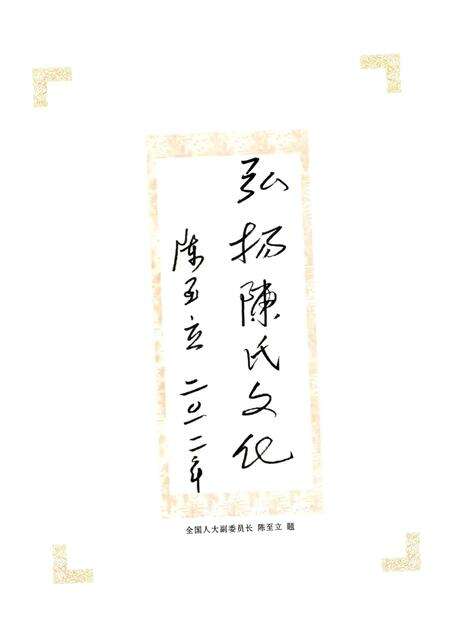 弘扬陳氏文化
陈至立 二〇一二年
全国人大副委员长 陈至立 题